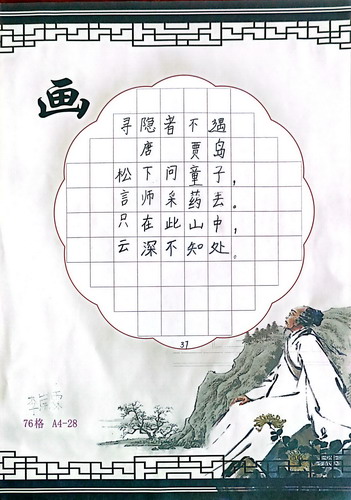 画
寻隐者不遇
唐 贾岛
松下问童子，
言师采药去。
只在此山中，
云深不知处。
37
76格 A4-28